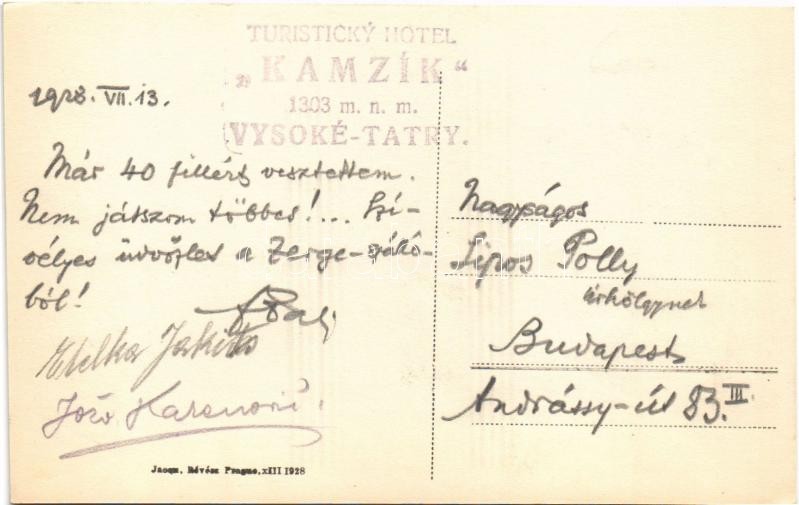 TURISTICKÝ HOTEL
„KAMZÍK“
1303 m. n. m.
VYSOKÉ-TATRY.
1928. VII. 13.
Már 40 fillért vesztettem.
Nem játszom többet!... Szí-
vélyes üdvözlet a Zerge-
ból!
Etelka
Józo
Nagyságos
Lipos Polly
úrhölgynek
Budapest
Andrássy-út 83. III.
Jacqu. Révész Prague, XIII 1928